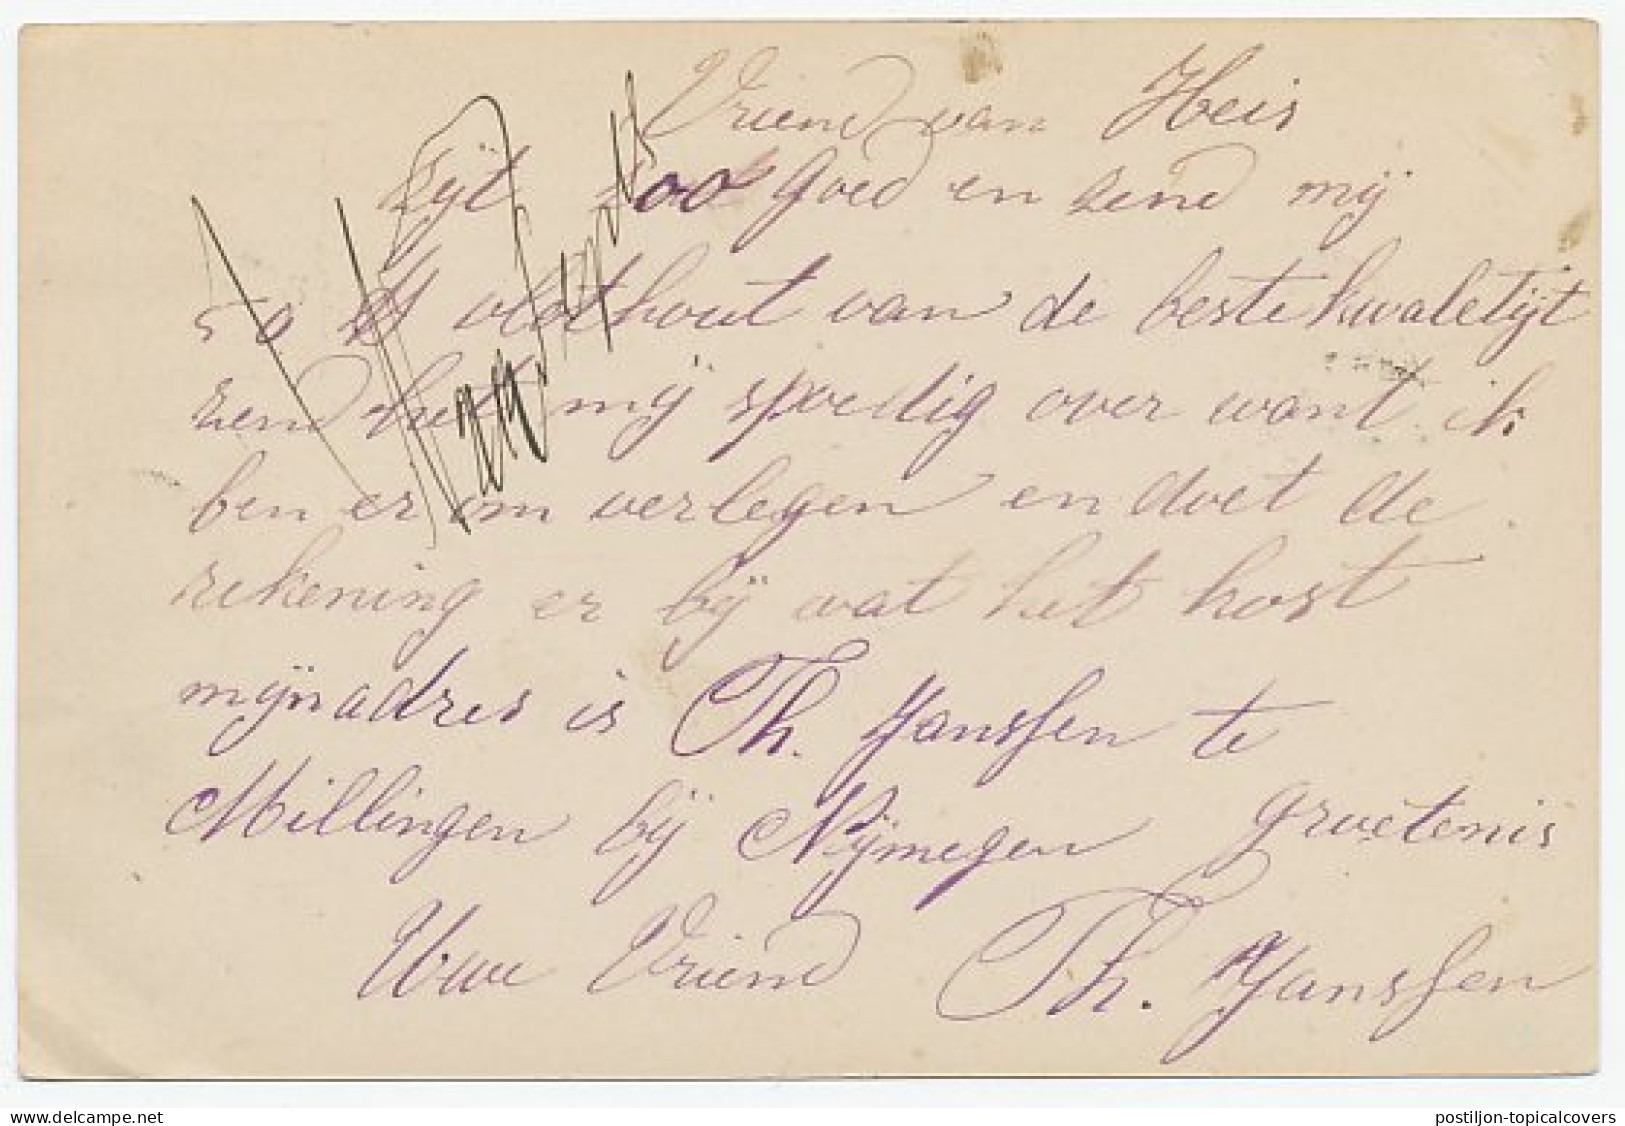 Vriend van Heis
zijt zoo goed en zend mij
50 vlothout van de beste kwaletijt
zend het mij spoedig over want ik
ben er om verlegen en doet de
rekening er bij wat het kost
mijn adres is Th. Janssen te
Millingen bij Nijmegen groetenis
Uwe Vriend Th. Janssen
www.delcampe.net
postiljon-topicalcovers